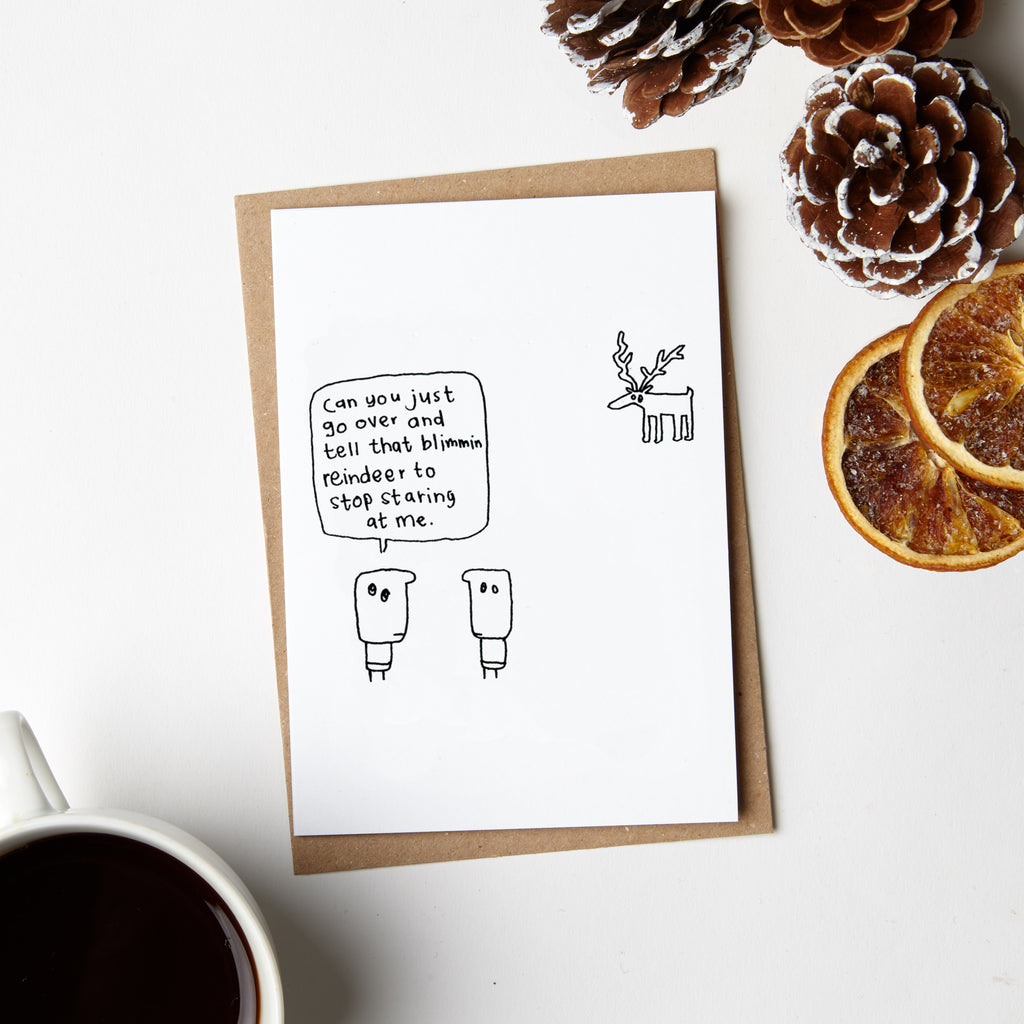 Can you just
go over and
tell that blimmin
reindeer to
stop staring
at me.